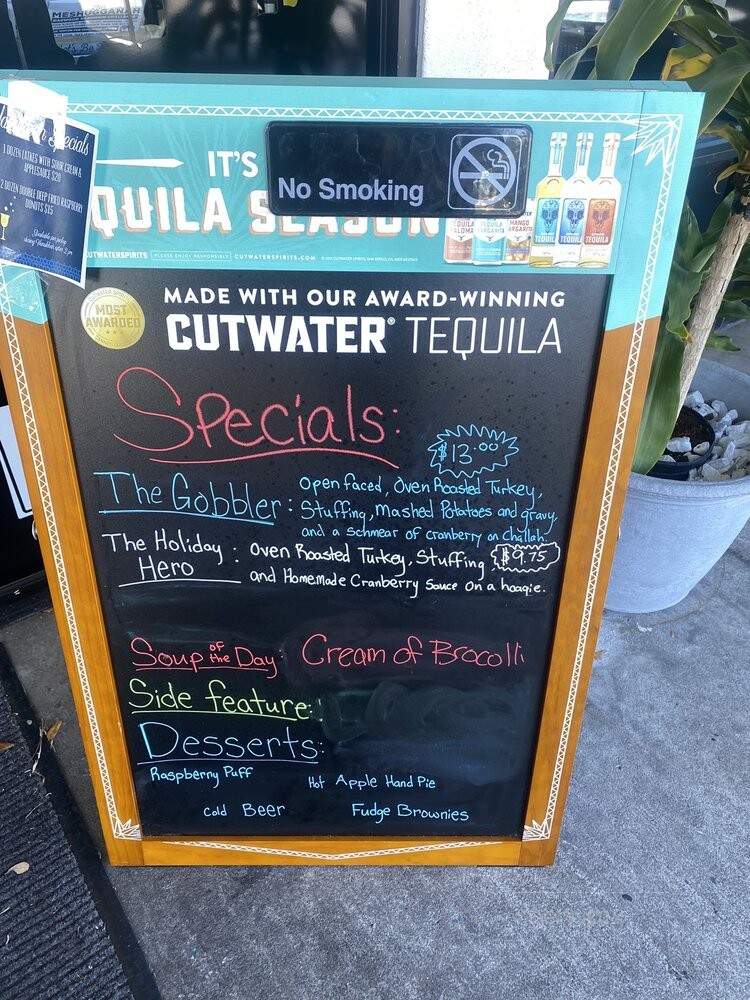 MESHUGGANAH
Specials
1 DOZEN LATKES WITH SOUR CREAM &
APPLESAUCE $20
2 DOZEN DOUBLE DEEP FRIED RASPBERRY
DONUTS $15
IT'S
QUILA SEASON
No Smoking
CUTWATERSPIRITS PLEASE ENJOY RESPONSIBLY CUTWATERSPIRITS.COM
TEQUILA TEQUILA TEQUILA
MOST
AWARDED
MADE WITH OUR AWARD-WINNING
CUTWATER® TEQUILA
Specials:
$13.00
The Gobbler: Open faced, Oven Roasted Turkey,
Stuffing, Mashed Potatoes and gravy,
and a schmear of cranberry on challah.
The Holiday Hero: Oven Roasted Turkey, Stuffing $9.75
and Homemade Cranberry Sauce on a hoagie.
Soup of the Day: Cream of Brocolli
Side feature:
Desserts:
Raspberry Puff Hot Apple Hand Pie
Cold Beer Fudge Brownies